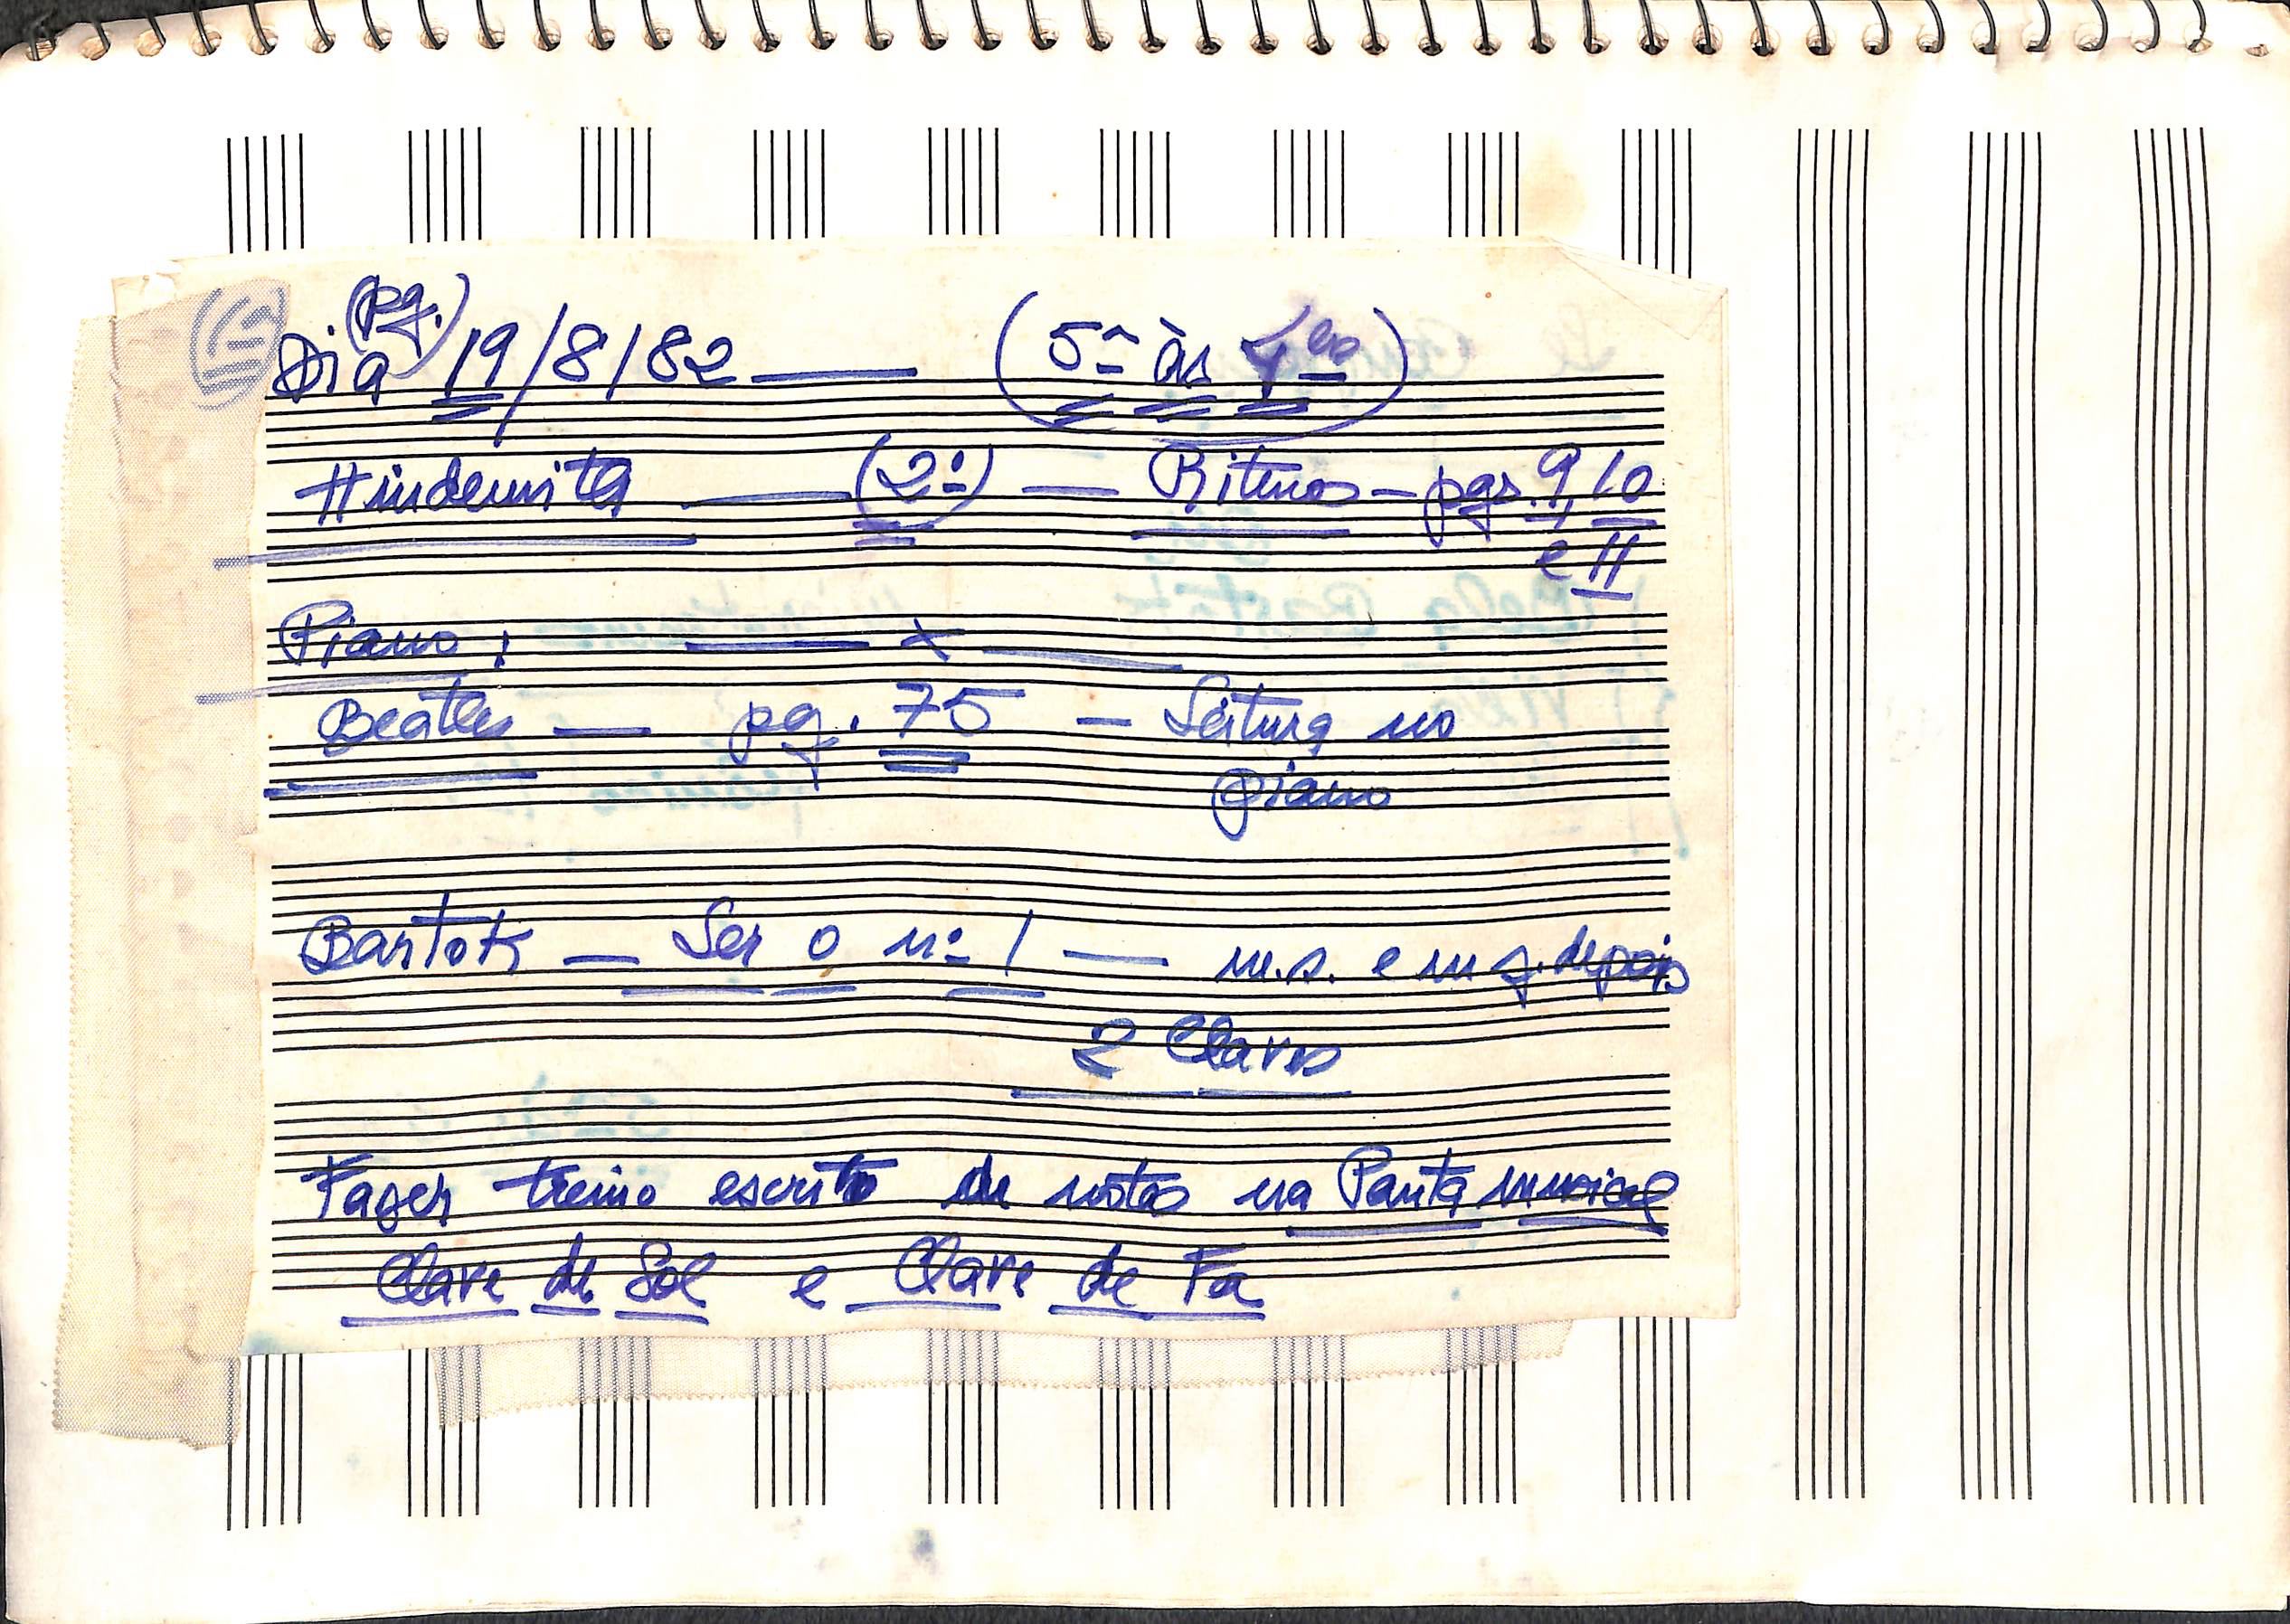 (pg.)
Dia 19/8/82 — (5ª às
Hindemith — (2º) — Ritmos — pgs. 9, 10
e 11
Piano: — x —
Beatles — pg. 75 — Leitura no
piano
Bartok — Ler o nº 1 — m.s. e m g. depois
2 Claves
Fazer treino escrito de notas na Pauta musical
Clave de Sol e Clave de Fa